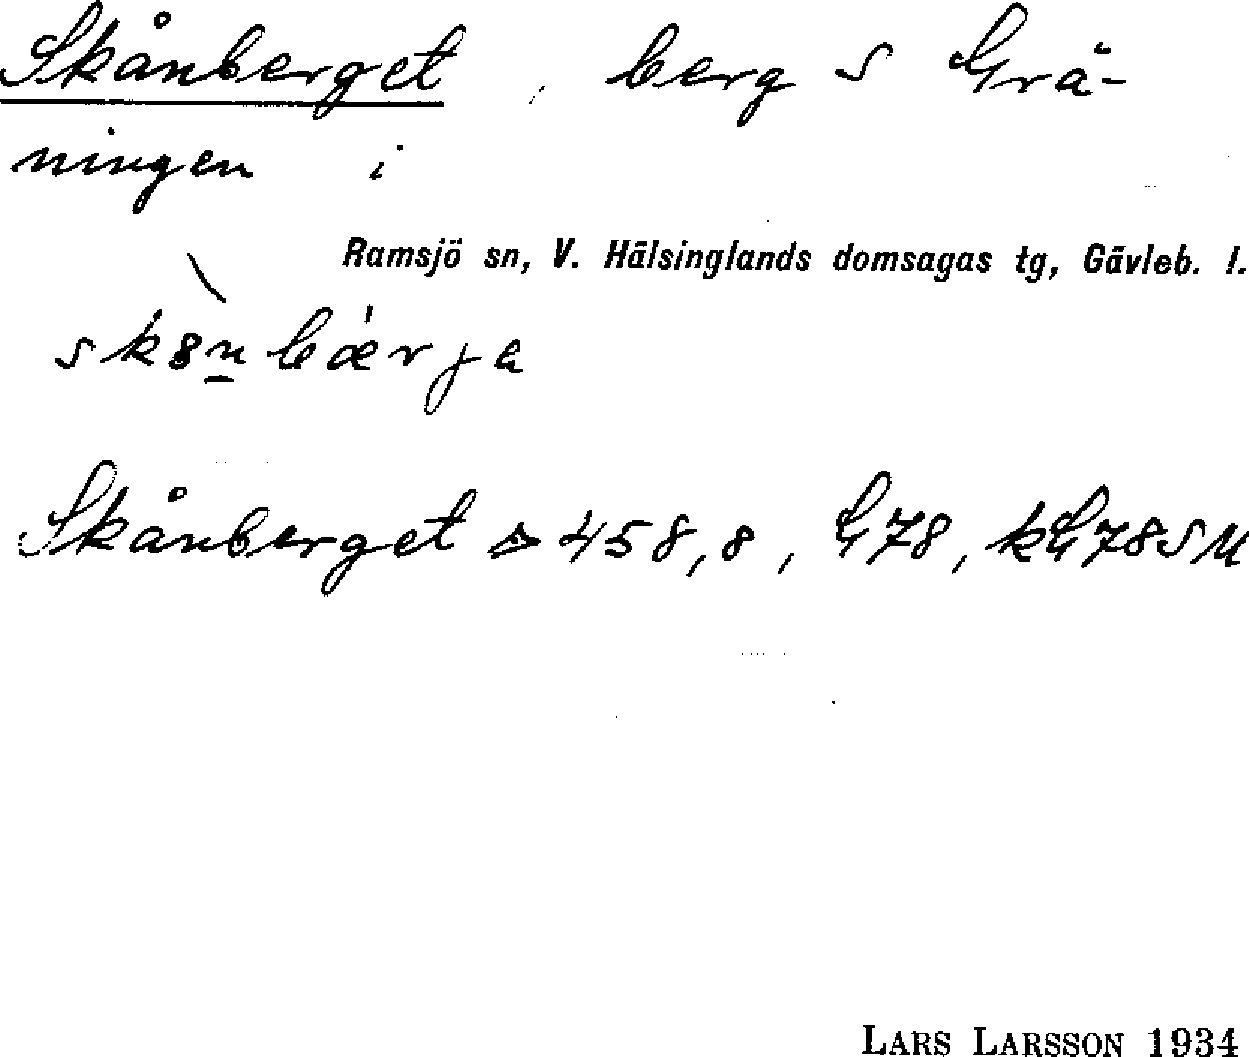 Skånberget, berg S Grä-
ningen i
Ramsjö sn, V. Hälsinglands domsagas tg, Gävleb. l.
sk8n̲bǽrja
Skånberget △ 458,8, G78, kG78SM
LARS LARSSON 1934